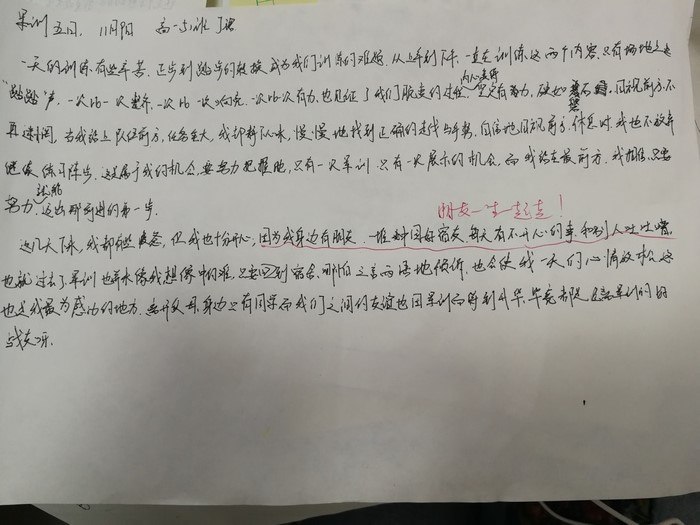 军训五日, 11月9日 高一5班
一天的训练有些辛苦. 正步到踏步的转换成为我们训练的难题. 从上午到下午. 一直在训练这两个内容. 只有场地之上
"踏踏"声. 一次比一次整齐. 一次比一次响亮. 一次比一次有力. 也见证了我们脱变的过程. 只有努力, 硬如石, 目视前方不
再 当我站上队伍前方. 任务重大, 我却静下心来, 慢慢地找到正确的走线与手势, 自信地目视前方. 休息时. 我也不放弃
继续练习踏步. 这是属于我的机会, 要努力把握他, 只有一次军训. 只有一次展示的机会. 而我站在最前方. 我相信. 只要
努力. 就能迈出那前进的第一步.
朋友一生一起走!
这几天下来, 我却有些 但我也十分开心, 因为我身边有朋友. 一堆来自好宿友. 每天有不开心的事, 和别人吐吐嘈.
也就过去了. 军训也并未像我想像中的难. 只要回到宿舍. 哪怕三言两语地倾诉, 也会使我一天的心情放松. 这
也是我最为感动的地方. 离开父母. 身边只有同学. 而我们之间的友谊也因军训而得到升华. 毕竟都是 军训的
战友呀.